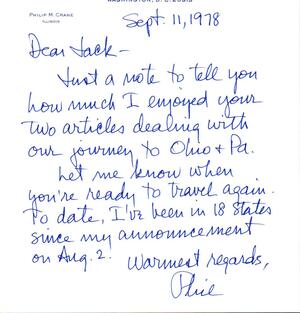 WASHINGTON, D. C. 20515
PHILIP M. CRANE
ILLINOIS
Sept. 11, 1978
Dear Jack -
Just a note to tell you
how much I enjoyed your
two articles dealing with
our journey to Ohio & Pa.
Let me know when
you're ready to travel again.
To date, I've been in 18 States
since my announcement
on Aug. 2.
Warmest regards,
Phil